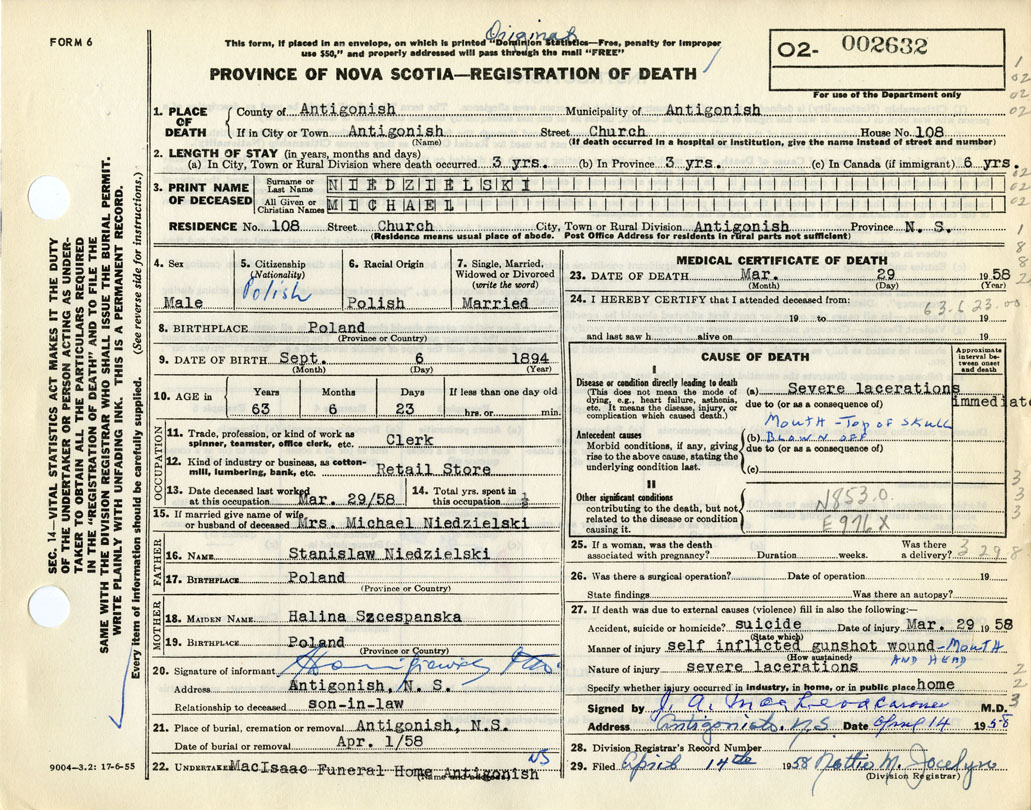 Original
FORM 6
This form, if placed in an envelope, on which is printed "Dominion Statistics—Free, penalty for improper
use $50," and properly addressed will pass through the mail "FREE"
O2- 002632
For use of the Department only
PROVINCE OF NOVA SCOTIA—REGISTRATION OF DEATH
1. PLACE OF DEATH
County of Antigonish Municipality of Antigonish
If in City or Town Antigonish Street Church House No. 108
(Name) (If death occurred in a hospital or institution, give the name instead of street and number)
2. LENGTH OF STAY (in years, months and days)
(a) In City, Town or Rural Division where death occurred 3 yrs. (b) In Province 3 yrs. (c) In Canada (if immigrant) 6 yrs.
3. PRINT NAME OF DECEASED
Surname or Last Name NIEDZIELSKI
All Given or Christian Names MICHAEL
RESIDENCE No. 108 Street Church City, Town or Rural Division Antigonish Province N. S.
(Residence means usual place of abode. Post Office Address for residents in rural parts not sufficient)
SEC. 14—VITAL STATISTICS ACT MAKES IT THE DUTY
OF THE UNDERTAKER OR PERSON ACTING AS UNDER-
TAKER TO OBTAIN ALL THE PARTICULARS REQUIRED
IN THE "REGISTRATION OF DEATH" AND TO FILE THE
SAME WITH THE DIVISION REGISTRAR WHO SHALL ISSUE THE BURIAL PERMIT.
WRITE PLAINLY WITH UNFADING INK. THIS IS A PERMANENT RECORD.
Every item of information should be carefully supplied. (See reverse side for instructions.)
4. Sex
Male
5. Citizenship
(Nationality)
Polish
6. Racial Origin
Polish
7. Single, Married,
Widowed or Divorced
(write the word)
Married
8. BIRTHPLACE Poland
(Province or Country)
9. DATE OF BIRTH Sept. 6 1894
(Month) (Day) (Year)
10. AGE in
Years Months Days If less than one day old
63 6 23 hrs. or min.
OCCUPATION
11. Trade, profession, or kind of work as
spinner, teamster, office clerk, etc. Clerk
12. Kind of industry or business, as cotton-
mill, lumbering, bank, etc. Retail Store
13. Date deceased last worked
at this occupation Mar. 29/58
14. Total yrs. spent in
this occupation ½
15. If married give name of wife
or husband of deceased Mrs. Michael Niedzielski
FATHER
16. NAME Stanislaw Niedzielski
17. BIRTHPLACE Poland
(Province or Country)
MOTHER
18. MAIDEN NAME Halina Szcespanska
19. BIRTHPLACE Poland
(Province or Country)
20. Signature of informant
Address Antigonish, N. S.
Relationship to deceased son-in-law
21. Place of burial, cremation or removal Antigonish, N.S.
Date of burial or removal Apr. 1/58
22. UNDERTAKER MacIsaac Funeral Home Antigonish NS
(Name and address)
9004—3.2: 17-6-55
MEDICAL CERTIFICATE OF DEATH
23. DATE OF DEATH Mar. 29 1958
(Month) (Day) (Year)
24. I HEREBY CERTIFY that I attended deceased from:
63.6 23.00
19 to 19
and last saw h alive on 19
CAUSE OF DEATH
Approximate
interval be-
tween onset
and death
I
Disease or condition directly leading to death
(This does not mean the mode of
dying, e.g., heart failure, asthenia,
etc. It means the disease, injury, or
complication which caused death.)
(a) Severe lacerations
immediate
due to (or as a consequence of)
Antecedent causes
Morbid conditions, if any, giving
rise to the above cause, stating the
underlying condition last.
MOUTH - TOP OF SKULL
(b) BLOWN OFF
due to (or as a consequence of)
(c)
II
Other significant conditions
contributing to the death, but not
related to the disease or condition
causing it.
N853.0.
E976X
25. If a woman, was the death
associated with pregnancy? Duration weeks. Was there
a delivery? 3 29 8
26. Was there a surgical operation? Date of operation 19
State findings Was there an autopsy?
27. If death was due to external causes (violence) fill in also the following:—
Accident, suicide or homicide? suicide Date of injury Mar. 29 1958
(State which)
Manner of injury self inflicted gunshot wound - MOUTH
(How sustained) AND HEAD
Nature of injury severe lacerations
Specify whether injury occurred in industry, in home, or in public place home
Signed by J. A. MacLeod Coroner M.D.
Address Antigonish, N.S. Date April 14 1958
28. Division Registrar's Record Number
29. Filed April 14th 1958 Nettie M. Jocelyn
(Division Registrar)
1
02
02
02
02
02
02
1
8
8
2
3
3
3
2
2
3